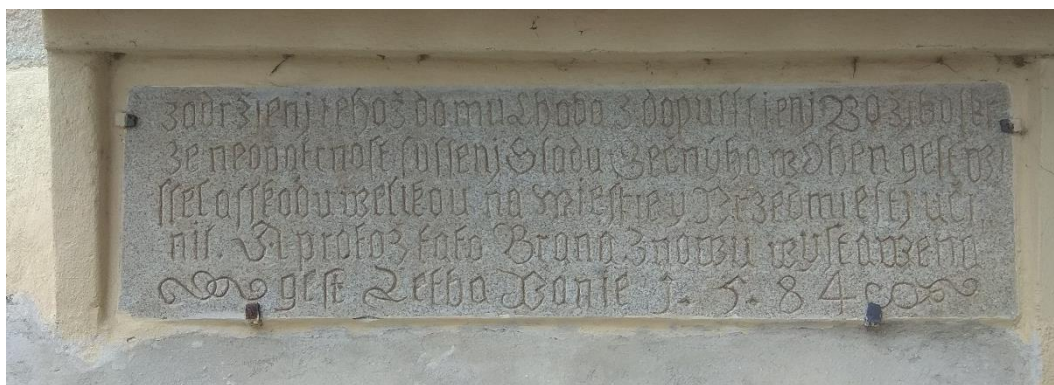 zadržienj tehož domu Lhoda z dopusstienj Bozyho
ze neopatrnost sussenj Sladu Gecnýho wohen gest w
ssel a sskodu welikau na Miestie y Przedmiestj uči
nil. A protoz tato Brana znowu wystawena
gest Letha Panie 1. 5. 8 4